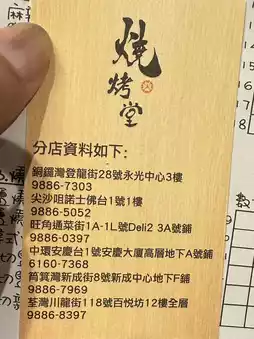 燒烤堂
分店資料如下:
銅鑼灣登龍街28號永光中心3樓
9886-7303
尖沙咀諾士佛台1號1樓
9886-5052
旺角通菜街1A-1L號Deli2 3A號鋪
9886-0397
中環安慶台1號安慶大廈高層地下A號鋪
6160-7368
筲箕灣新成街8號新成中心地下F鋪
9886-7969
荃灣川龍街118號百悅坊12樓全層
9886-8397